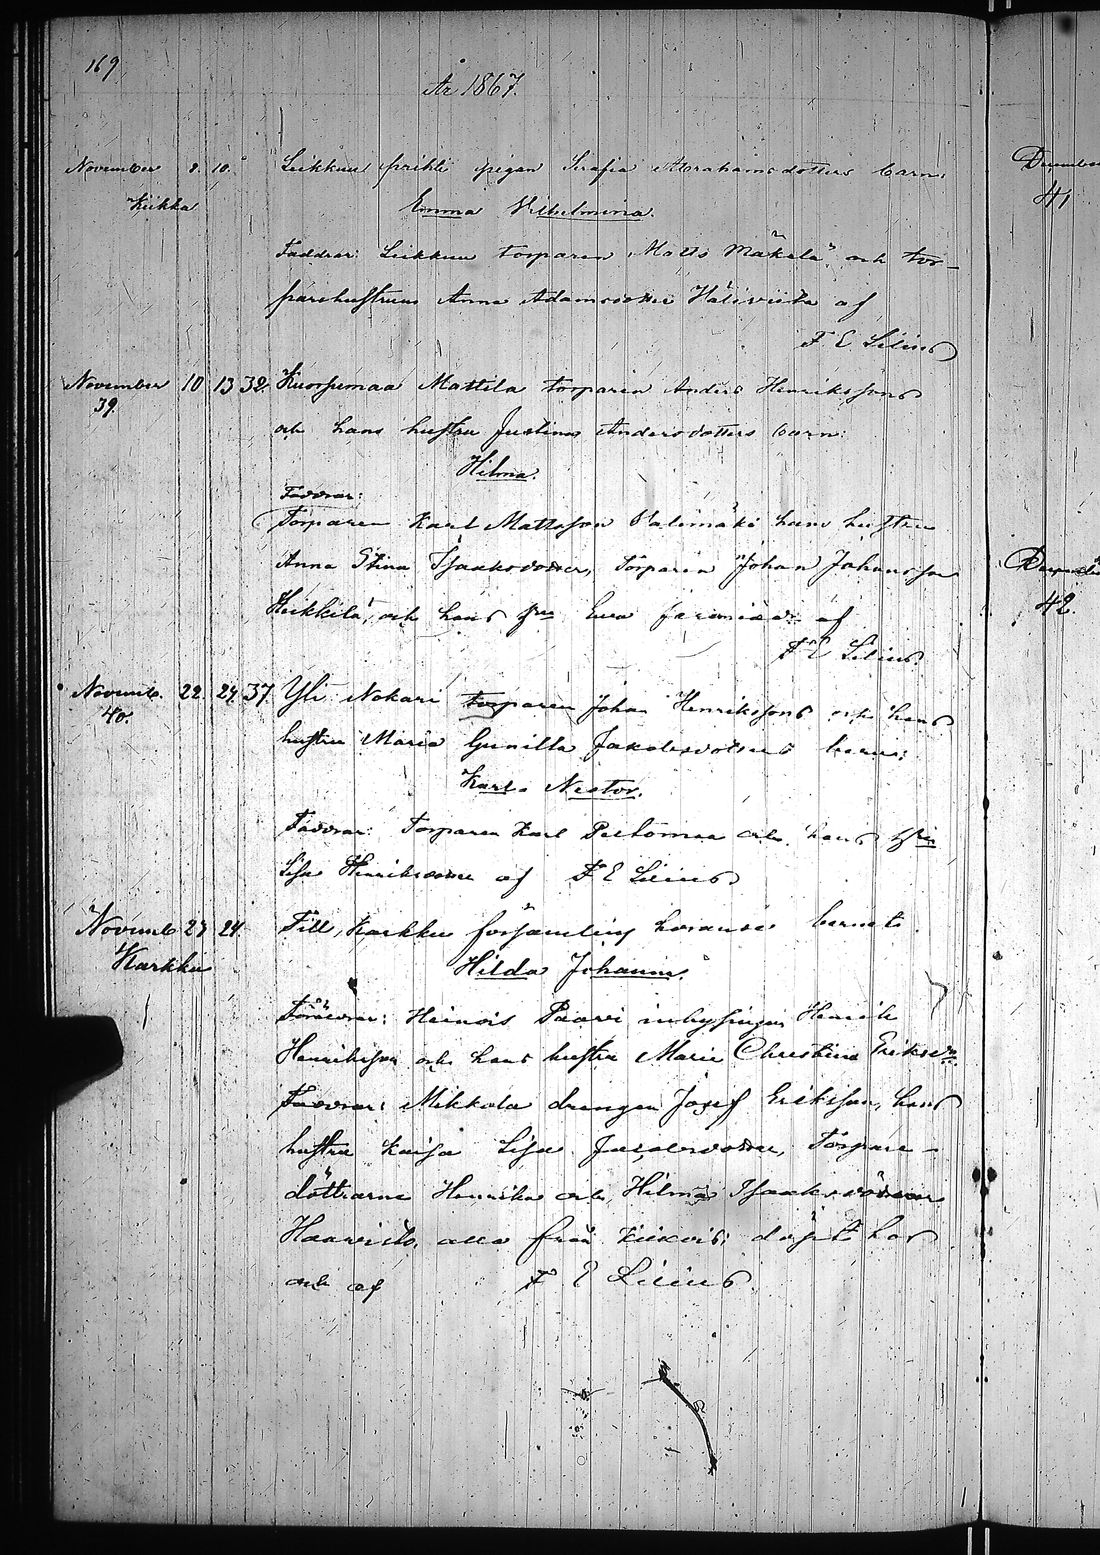 169
År 1867.
November 8. 10. Leikkuu pigan Serafia Abrahamsdotters barn:
Kiikka Emma Vilhelmina.
Faddrar: Leikkuu torparen Matts Mäkelä och tor-
parehustrun Anna Adamsdotter af
F E Lilius
November 10 13 32. Kuorsumaa Mattila torparen Anders Henrikssons
39. och hans hustru Justina Andersdotters barn:
Hilma.
Faddrar:
Torparen Karl Mattsson Valimäki hans hustru
Anna Stina Isaaksdotter, Torparen Johan Johansson
Heikkilä, och hans hru Eva af
F E Lilius.
Novemb. 22. 24. 37. Yli Nokari torparen Johan Henrikssons och hans
40. hustru Maria Gunilla Jakobsdotters barn:
Karl Nestor.
Faddrar: Torparen Karl Peltomaa och hans hru
Lisa Henriksdotter af F E Lilius
Novemb 23 24. Till Karkku församling hörande barnet
Karkku Hilda Johanna.
Föräldrar: Heinois Paavi inhysingen Henrik
Henriksson och hans hustru Maria Christina Eriksdr.
Faddrar: Mikkola drengen Josef Eriksson, hans
hustru Kaisa Lisa Torpare-
döttrarna Henrika och Hilma Isaaksdöttrar
Haavisto, alla från döpt här
och af F E Lilius.
December
41
42.